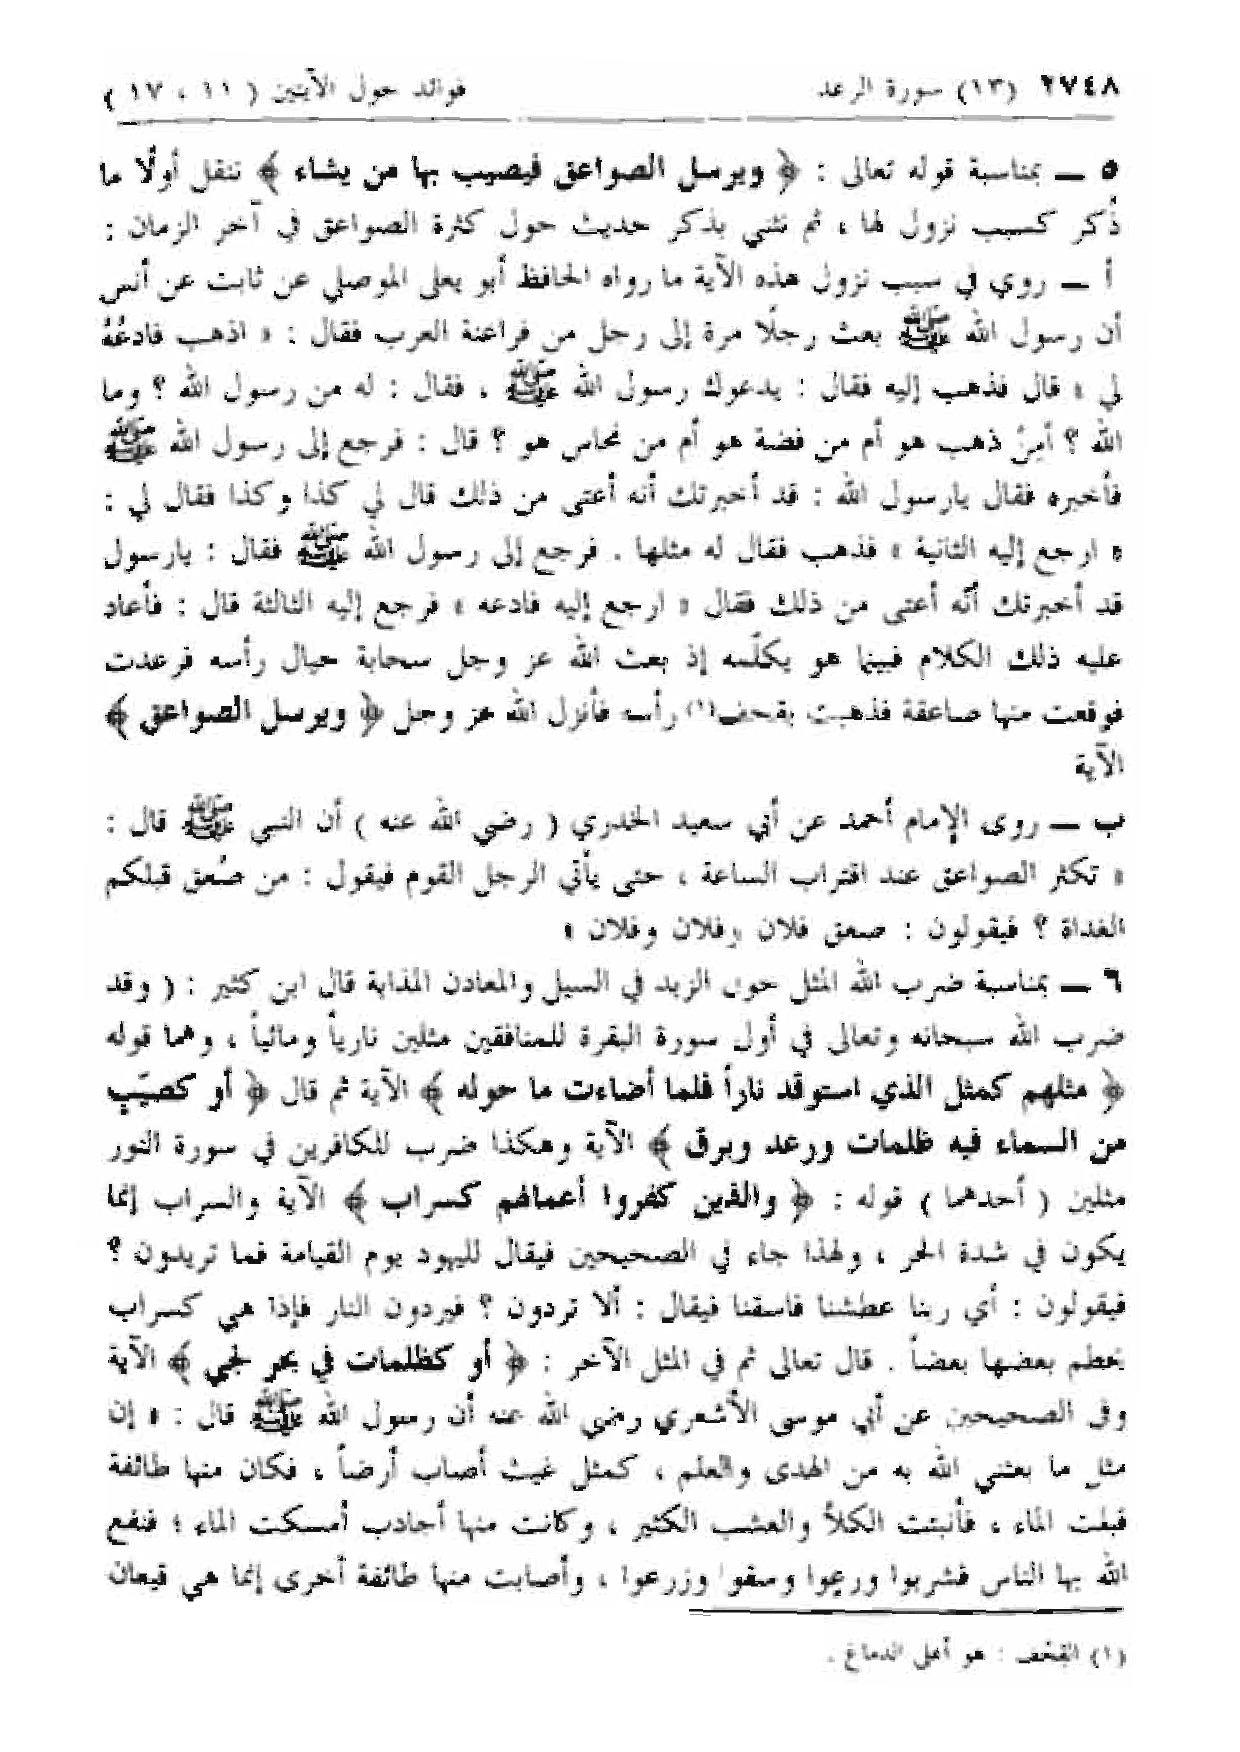 ٢٧٤٨ (١٣) سورة الرعد فوائد حول الآيتين ( ١١ ، ١٧ )
٥ ــ بمناسبة قوله تعالى : ﴿ ويرسل الصواعق فيصيب بها من يشاء ﴾ ننقل أولًا ما
ذُكر كسبب نزول لها ، ثم نثني بذكر حديث حول كثرة الصواعق في آخر الزمان :
أ ــ روي في سبب نزول هذه الآية ما رواه الحافظ أبو يعلى الموصلي عن ثابت عن أنس
أن رسول الله ﷺ بعث رجلًا مرة إلى رجل من فراعنة العرب فقال : « اذهب فادعُهُ
لي » قال فذهب إليه فقال : يدعوك رسول الله ﷺ ، فقال : له من رسول الله ؟ وما
الله ؟ أمِنْ ذهب هو أم من فضة هو أم من نحاس هو ؟ قال : فرجع إلى رسول الله ﷺ
فأخبره فقال يارسول الله : قد أخبرتك أنه أعتى من ذلك قال لي كذا وكذا فقال لي :
« ارجع إليه الثانية » فذهب فقال له مثلها . فرجع إلى رسول الله ﷺ فقال : يارسول
قد أخبرتك أنّه أعتى من ذلك فقال « ارجع إليه فادعه » فرجع إليه الثالثة قال : فأعاد
عليه ذلك الكلام فبينما هو يكلّمه إذ بعث الله عز وجل سحابة حيال رأسه فرعدت
فوقعت منها صاعقة فذهبت بقحف(١) رأسه فأنزل الله عز وجل ﴿ ويرسل الصواعق ﴾
الآية
ب ــ روى الإمام أحمد عن أبي سعيد الخدري ( رضي الله عنه ) أن النبي ﷺ قال :
« تكثر الصواعق عند اقتراب الساعة ، حتى يأتي الرجل القوم فيقول : من صُعق قبلكم
الغداة ؟ فيقولون : صعق فلان وفلان وفلان »
٦ ــ بمناسبة ضرب الله المثل حول الزبد في السيل والمعادن المذابة قال ابن كثير : ( وقد
ضرب الله سبحانه وتعالى في أول سورة البقرة للمنافقين مثلين نارياً ومائياً ، وهما قوله
﴿ مثلهم كمثل الذي استوقد ناراً فلما أضاءت ما حوله ﴾ الآية ثم قال ﴿ أو كصيّبٍ
من السماء فيه ظلمات ورعد وبرق ﴾ الآية وهكذا ضرب للكافرين في سورة النور
مثلين ( أحدهما ) قوله : ﴿ والذين كفروا أعمالهم كسراب ﴾ الآية والسراب إنما
يكون في شدة الحر ، ولهذا جاء في الصحيحين فيقال لليهود يوم القيامة فما تريدون ؟
فيقولون : أي ربنا عطشنا فاسقنا فيقال : ألا تردون ؟ فيردون النار فإذا هي كسراب
يحطم بعضها بعضاً . قال تعالى ثم في المثل الآخر : ﴿ أو كظلمات في بحر لجي ﴾ الآية
وفي الصحيحين عن أبي موسى الأشعري رضي الله عنه أن رسول الله ﷺ قال : « إن
مثل ما بعثني الله به من الهدى والعلم ، كمثل غيث أصاب أرضاً ، فكان منها طائفة
قبلت الماء ، فأنبتت الكلأ والعشب الكثير ، وكانت منها أجادب أمسكت الماء ؛ فنفع
الله بها الناس فشربوا ورعوا وسقوا وزرعوا ، وأصابت منها طائفة أخرى إنما هي قيعان
(١) القِحْف : هو أعلى الدماغ .